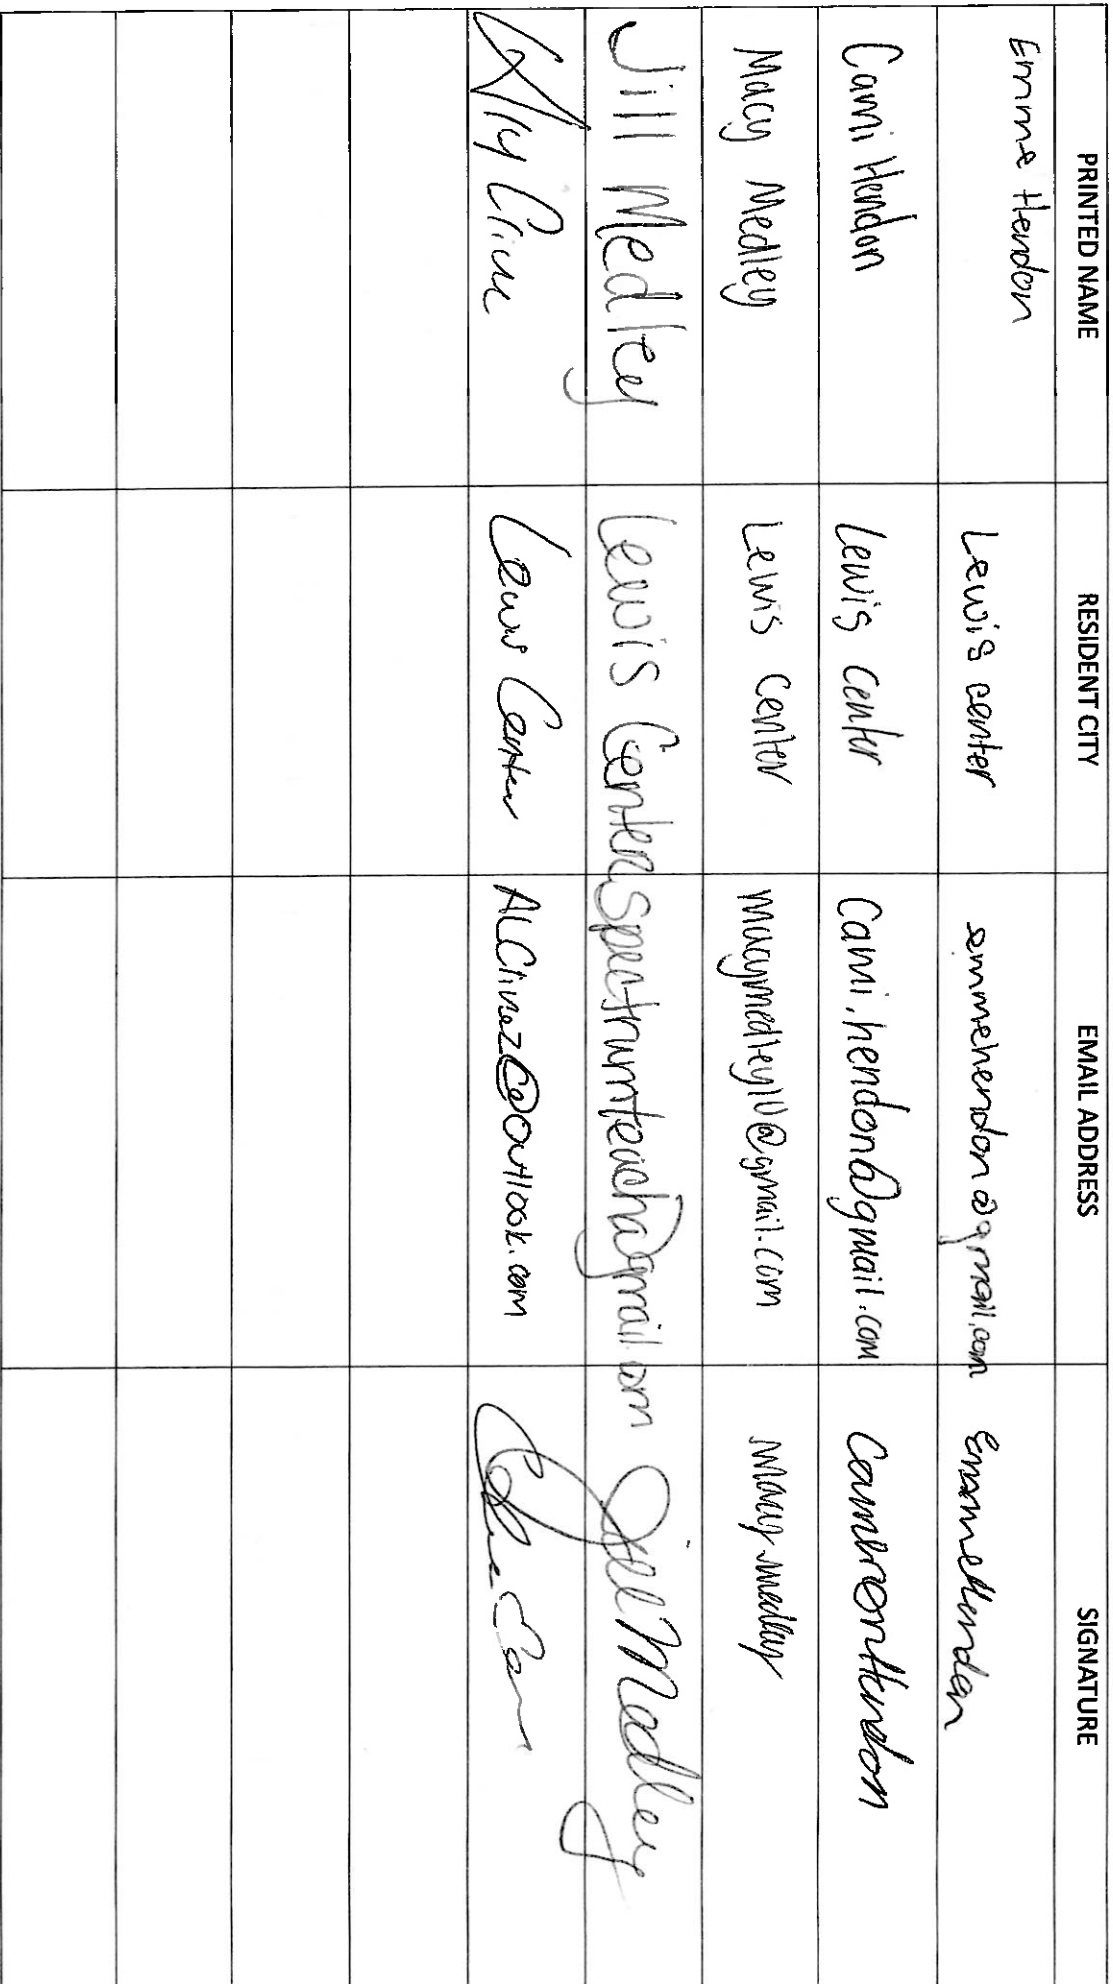 PRINTED NAME RESIDENT CITY EMAIL ADDRESS SIGNATURE
Emme Hendon Lewis center emmehendon@gmail.com Emme Hendon
Cami Hendon Lewis center Cami.hendon@gmail.com Cameron Hendon
Macy Medley Lewis Center macymedley10@gmail.com Macy Medley
Jill Medley Lewis Center spectrumteach@gmail.com Jill Medley
Cline Lewis Center ALCline2@outlook.com